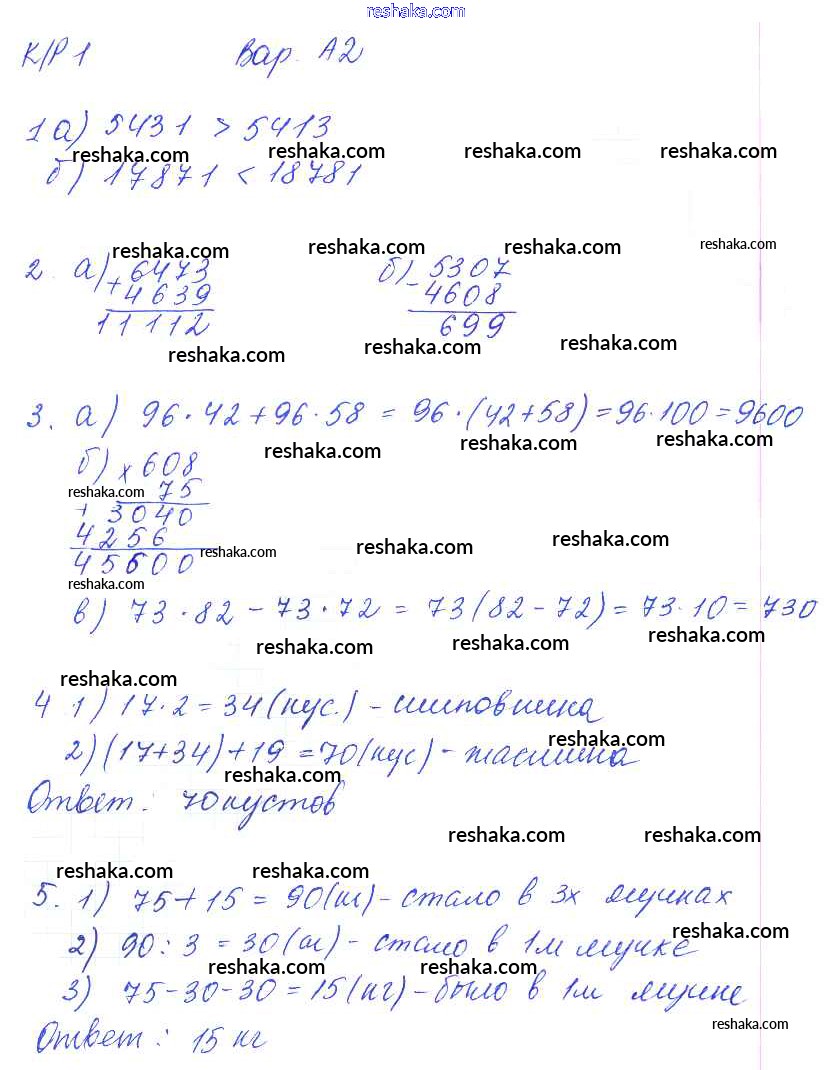 reshaka.com
К/Р 1 Вар. А2
1 а) 5431 > 5413
reshaka.com reshaka.com reshaka.com reshaka.com
б) 17871 < 18781
reshaka.com reshaka.com reshaka.com reshaka.com
2 а) + 6473 б) - 5307
4639 4608
11112 699
reshaka.com reshaka.com reshaka.com
3. а) 96 · 42 + 96 · 58 = 96 · (42 + 58) = 96 · 100 = 9600
reshaka.com reshaka.com reshaka.com
б) × 608
reshaka.com 75
+ 3040
4256
reshaka.com reshaka.com reshaka.com
45600
reshaka.com
в) 73 · 82 - 73 · 72 = 73 (82 - 72) = 73 · 10 = 730
reshaka.com reshaka.com reshaka.com
reshaka.com
4 1) 17 · 2 = 34 (кус.) - шиповника
2) (17 + 34) + 19 = 70 (кус) - жасмина
reshaka.com
reshaka.com
Ответ: 70 кустов
reshaka.com reshaka.com
reshaka.com reshaka.com
5. 1) 75 + 15 = 90 (кг) - стало в 3х ящиках
reshaka.com
2) 90 : 3 = 30 (кг) - стало в 1м ящике
reshaka.com reshaka.com
3) 75 - 30 - 30 = 15 (кг) - было в 1м ящике
reshaka.com
Ответ: 15 кг